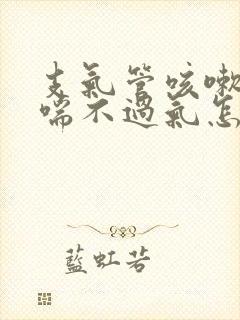 支氣管咳嗽
喘不過氣怎
藍虹若